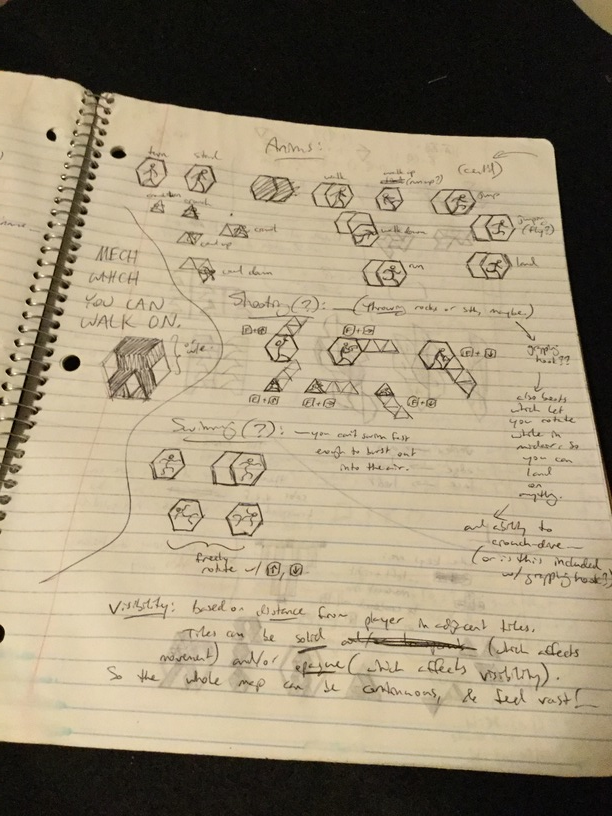 Anims:
(cont'd)
turn
stand
walk
walk up
(run up?)
jump
crawl
crawl up
crawl down
walk down
run
jump
(fly?)
land
MECH
WHICH
YOU CAN
WALK ON.
Shooting (?): — (throwing rocks or sth, maybe.)
grappling
hook??
F + ↑
F + →
F + ↓
F + ↑
F + →
F + ↓
also boots
which let
you rotate
while in
midair, so
you can
land
on
anything.
and ability to
crouch-dive
(or is this included
w/ grappling hook?)
Swimming (?): — you can't swim fast
enough to burst out
into the air.
freely
rotate w/ ↑, ↓.
Visibility: based on distance from player in adjacent tiles.
Tiles can be solid (which affects
movement) and/or opaque (which affects visibility).
So the whole map can be continuous, & feel vast!